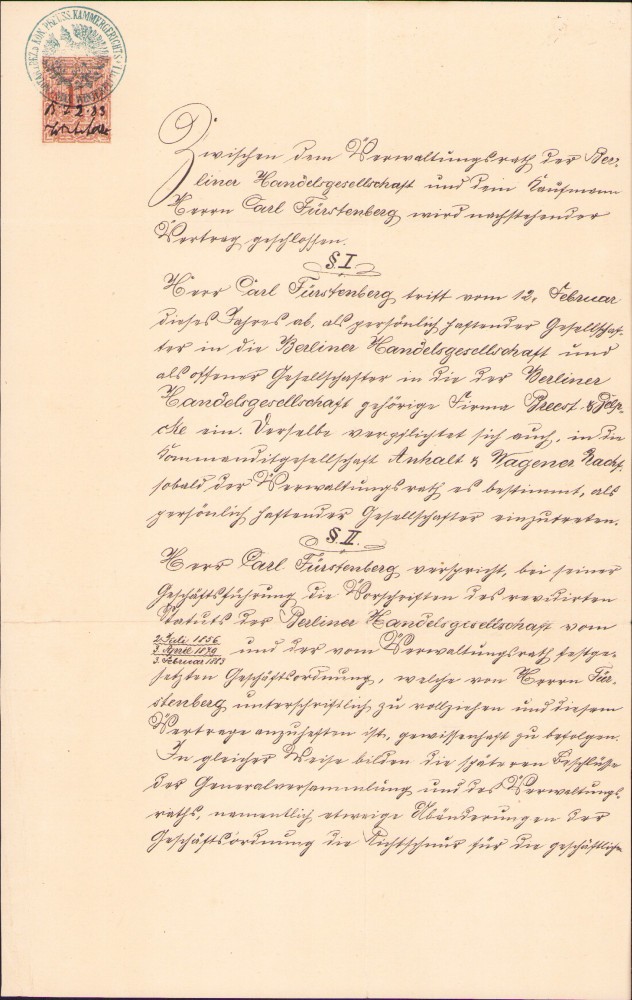 Zwischen dem Verwaltungsrath der Ber-
liner Handelsgesellschaft und dem Kaufmann
Herrn Carl Fürstenberg wird nachstehender
Vertrag geschlossen.
§. I.
Herr Carl Fürstenberg tritt vom 12. Februar
dieses Jahres ab, als persönlich haftender Gesellschaf-
ter in die Berliner Handelsgesellschaft und
als offener Gesellschafter in die der Berliner
Handelsgesellschaft gehörige Firma Breest & Gelp-
cke ein. Derselbe verpflichtet sich auch, in die
Kommanditgesellschaft Anhalt & Wagener Nachf.
sobald der Verwaltungsrath es bestimmt, als
persönlich haftender Gesellschafter einzutreten.
§. II.
Herr Carl Fürstenberg verspricht, bei seiner
Geschäftsführung die Vorschriften des revidirten
Statuts der Berliner Handelsgesellschaft vom
2. Juli 1856
3. April 1879
3. Februar 1883
und der vom Verwaltungsrath festge-
setzten Geschäftsordnung, welche von Herrn Für-
stenberg unterschriftlich zu vollziehen und diesem
Vertrage anzuheften ist, gewissenhaft zu befolgen.
In gleicher Weise bilden die späteren Beschlüsse
der Generalversammlung und des Verwaltungs-
raths, namentlich etwaige Abänderungen der
Geschäftsordnung die Richtschnur für die geschäftliche